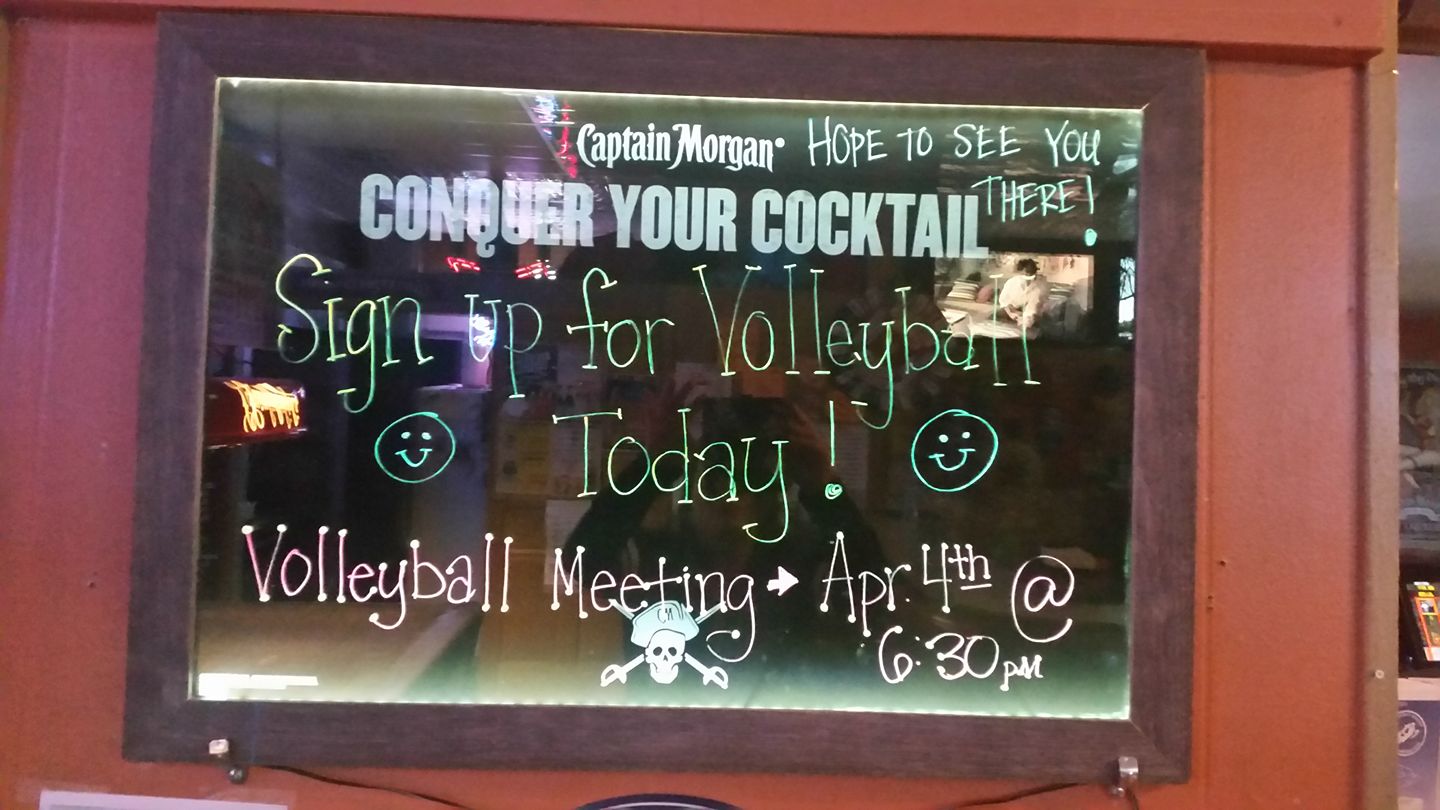 Captain Morgan HOPE TO SEE YOU
THERE!
CONQUER YOUR COCKTAIL
Sign up for Volleyball
Today!
Volleyball Meeting → Apr. 4th @
6:30 PM
CM